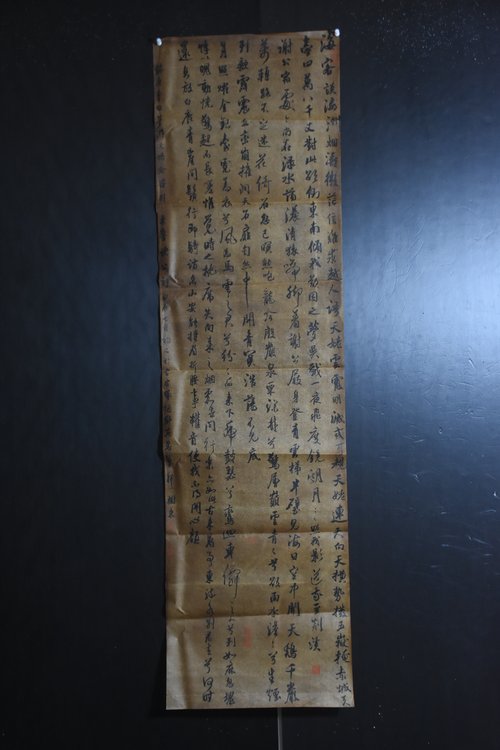 海客談瀛洲烟濤微茫信難求越人語天姥雲霓明滅或可覩天姥連天向天橫勢拔五嶽掩赤城天
臺四萬八千丈對此欲倒東南傾我欲因之夢吳越一夜飛度鏡湖月〻照我影送我至剡溪
謝公宿處今尚在淥水蕩漾清猿啼脚著謝公屐身登青雲梯半壁見海日空中聞天鷄千巖
萬轉路不定迷花倚石忽已暝熊咆龍吟殷巖泉栗深林兮驚層巔雲青〻兮欲雨水澹〻兮生煙
列缺霹靂丘巒崩摧洞天石扉訇然中開青冥浩蕩不見底
月照耀金銀臺霓為衣兮風為馬雲之君兮紛〻而來下虎鼓瑟兮鸞迴車仙之人兮列如麻忽魂
悸魄動恍驚起而長嗟惟覺時之枕席失向來之烟霞世間行樂亦如此古來萬事東流水別君去兮何時
還且放白鹿青崖間須行即騎訪名山安能摧眉折腰事權貴使我不得開心顏